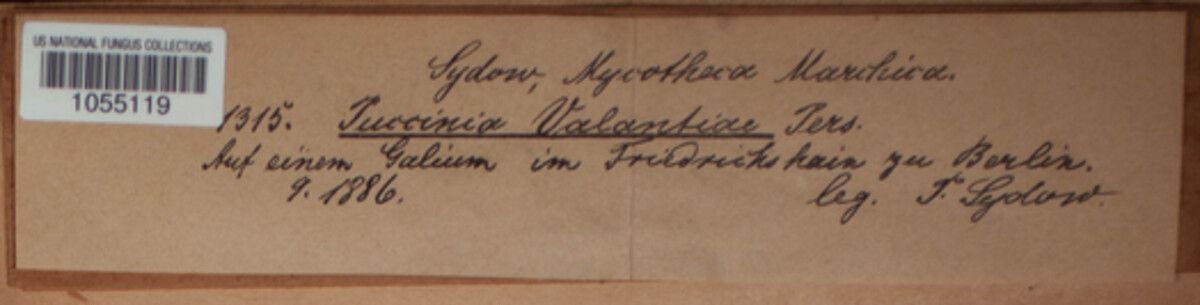 US NATIONAL FUNGUS COLLECTIONS
1055119
Sydow, Mycotheca Marchica.
1315. Puccinia Valantiae Pers.
Auf einem Galium im Friedrichshain zu Berlin.
9. 1886. leg. P. Sydow.